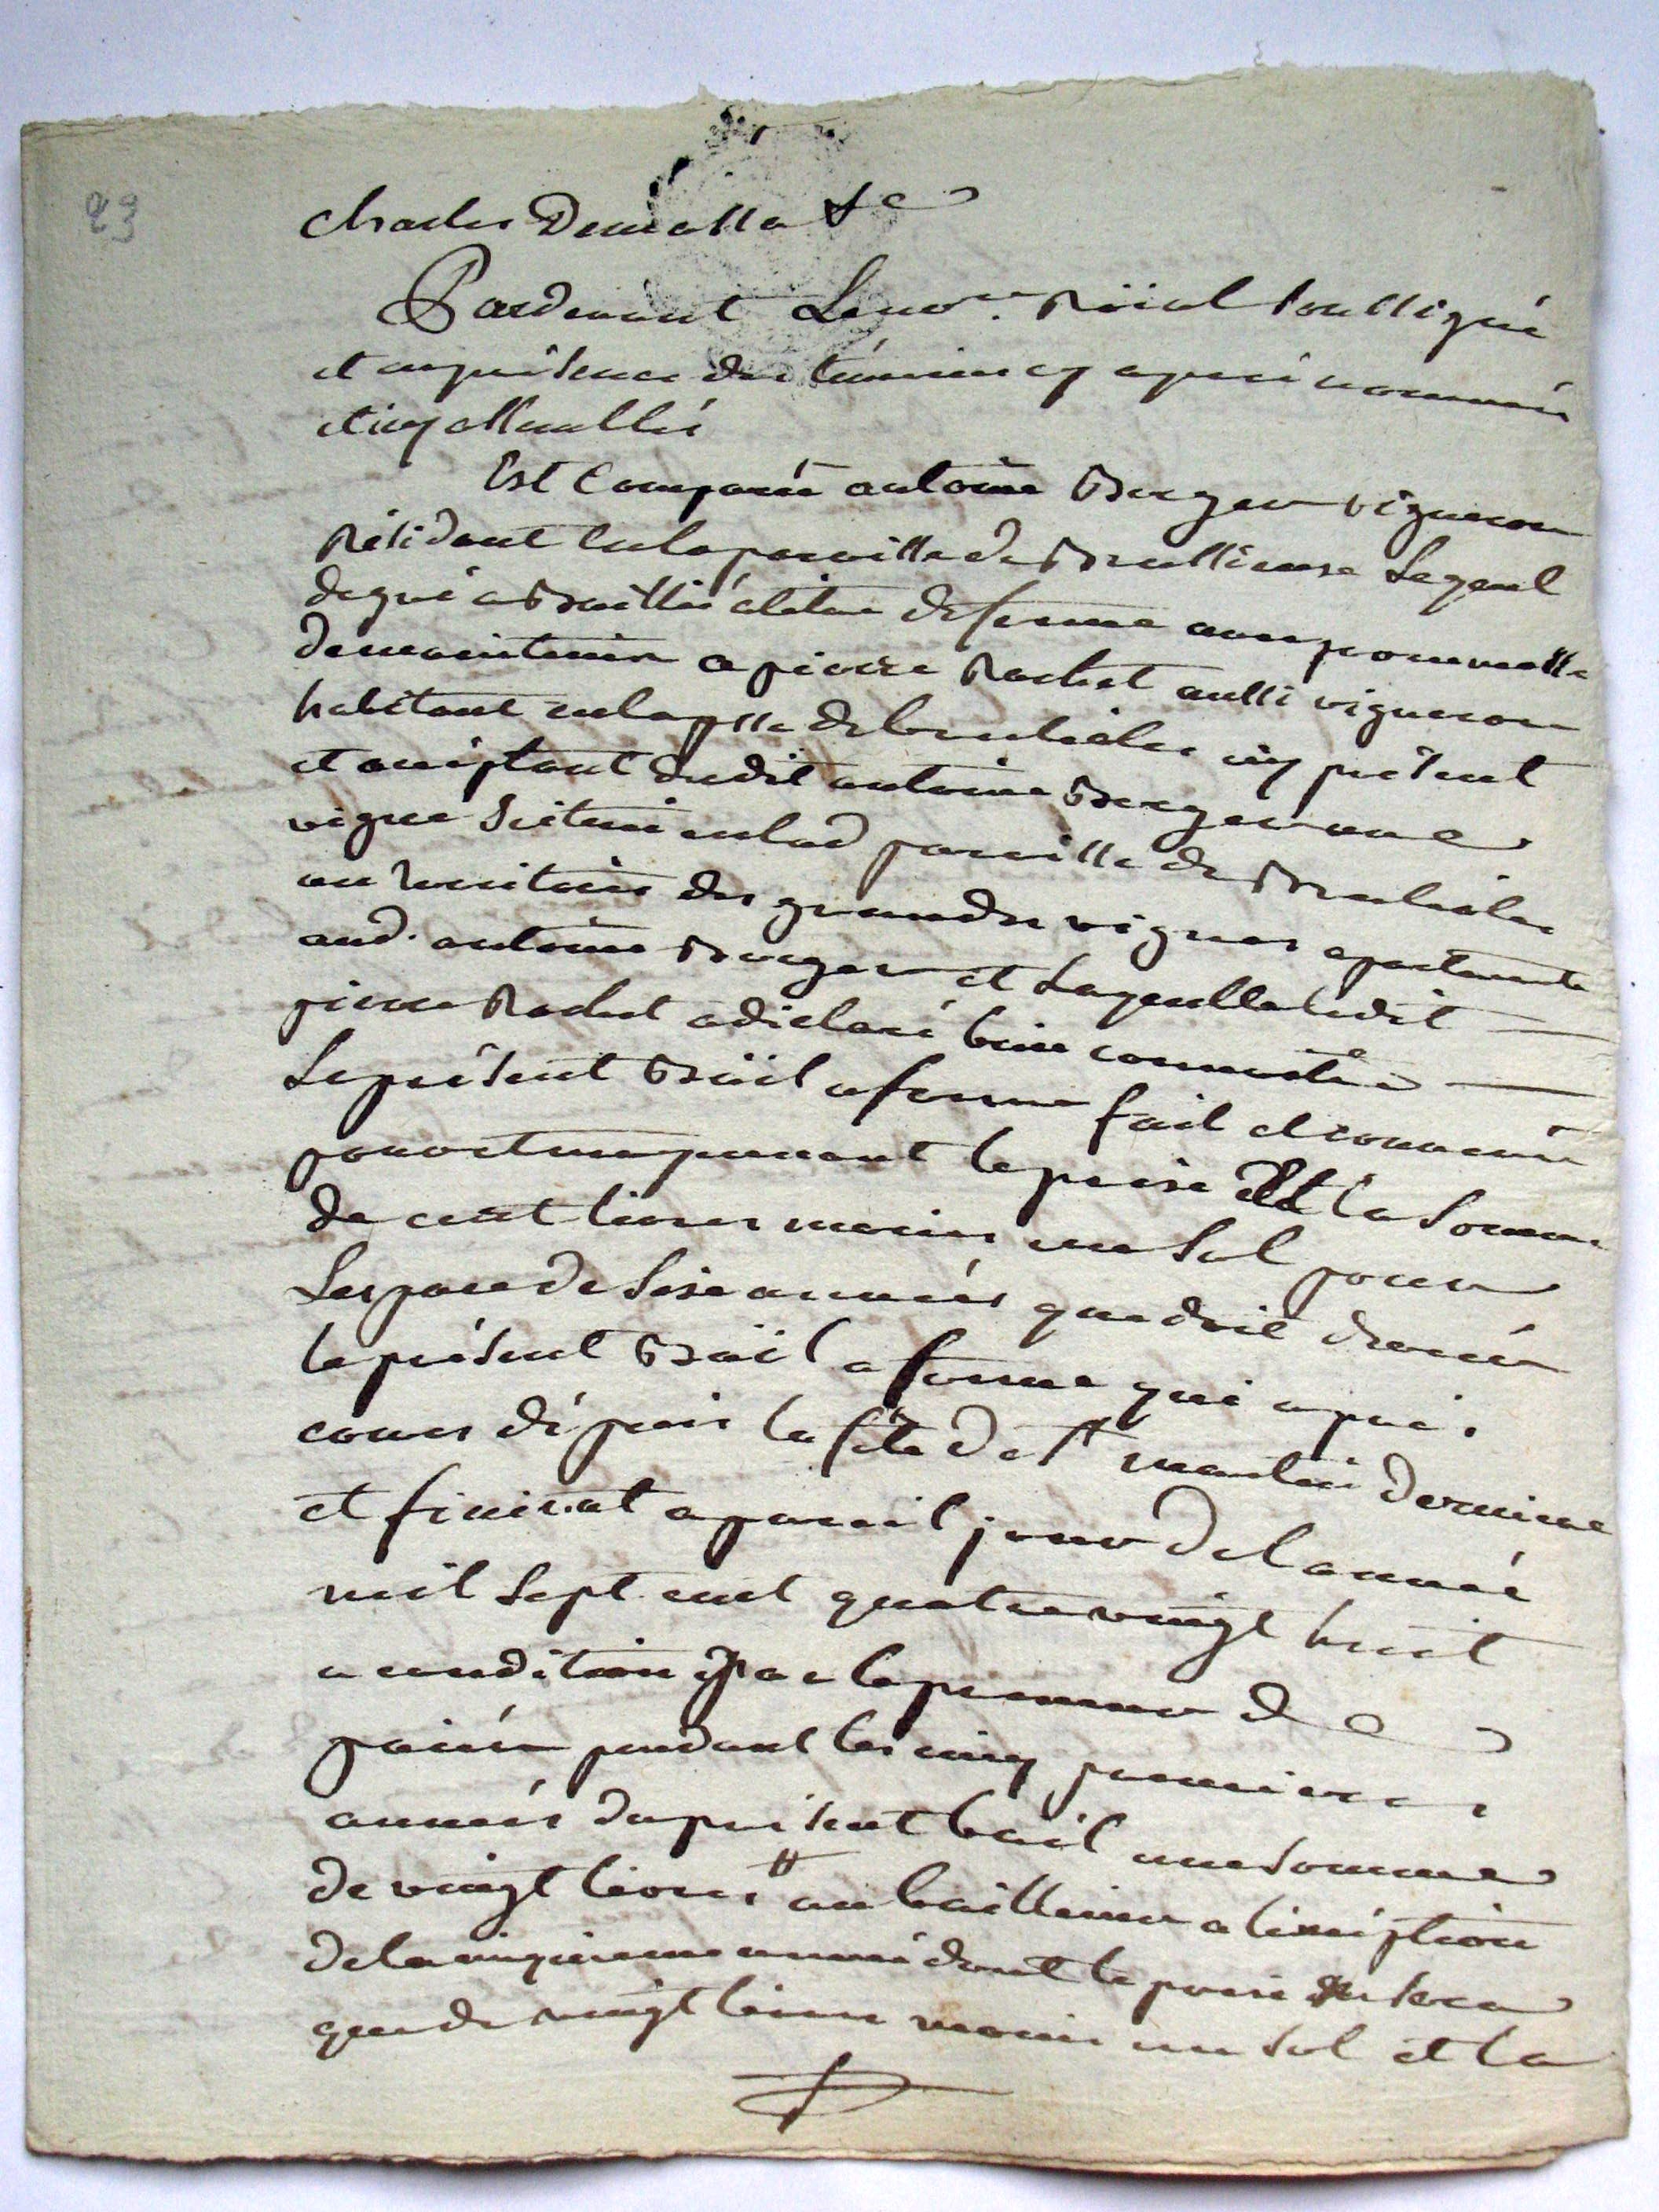 23
Pardevant Le no.re Röial soussigné
et en présence des témoins cy après nommés
et icy assemblés
Est Comparû antoine Berger vigneron
Résidant en la paroisse de Brussieux Lequel
de gré a Baillié a titre de ferme avec promesse
de maintenir a pierre Rachet aussi vigneron
habitant en la psse de icy présent
et acceptant dudit antoine Berger une
vigne Scituée en lad paroisse de
au territoire des grandes vignes apartenante
aud. antoine Berger et Laquelle ledit
pierre Rachet a déclaré bien connoitre
Le présent Bäil a ferme fait et convenû
pour et moyennant le prix Et la Somme
de cent livres moins un Sol pour
Lespace de Sixe années que doit durer
le présent Bäil a ferme qui a pris
cours dépuis la fête de st martin derniere
et finirat a pareil jour de lannée
mil Sept cent quatre vingt huit
a condition par le preneur de
paiér pendant les cinq premieres
années du présent bail une somme
de vingt livres tt au bailleur a lexception
de la année dont le prix ne sera
que de vingt livres moins un Sol et la